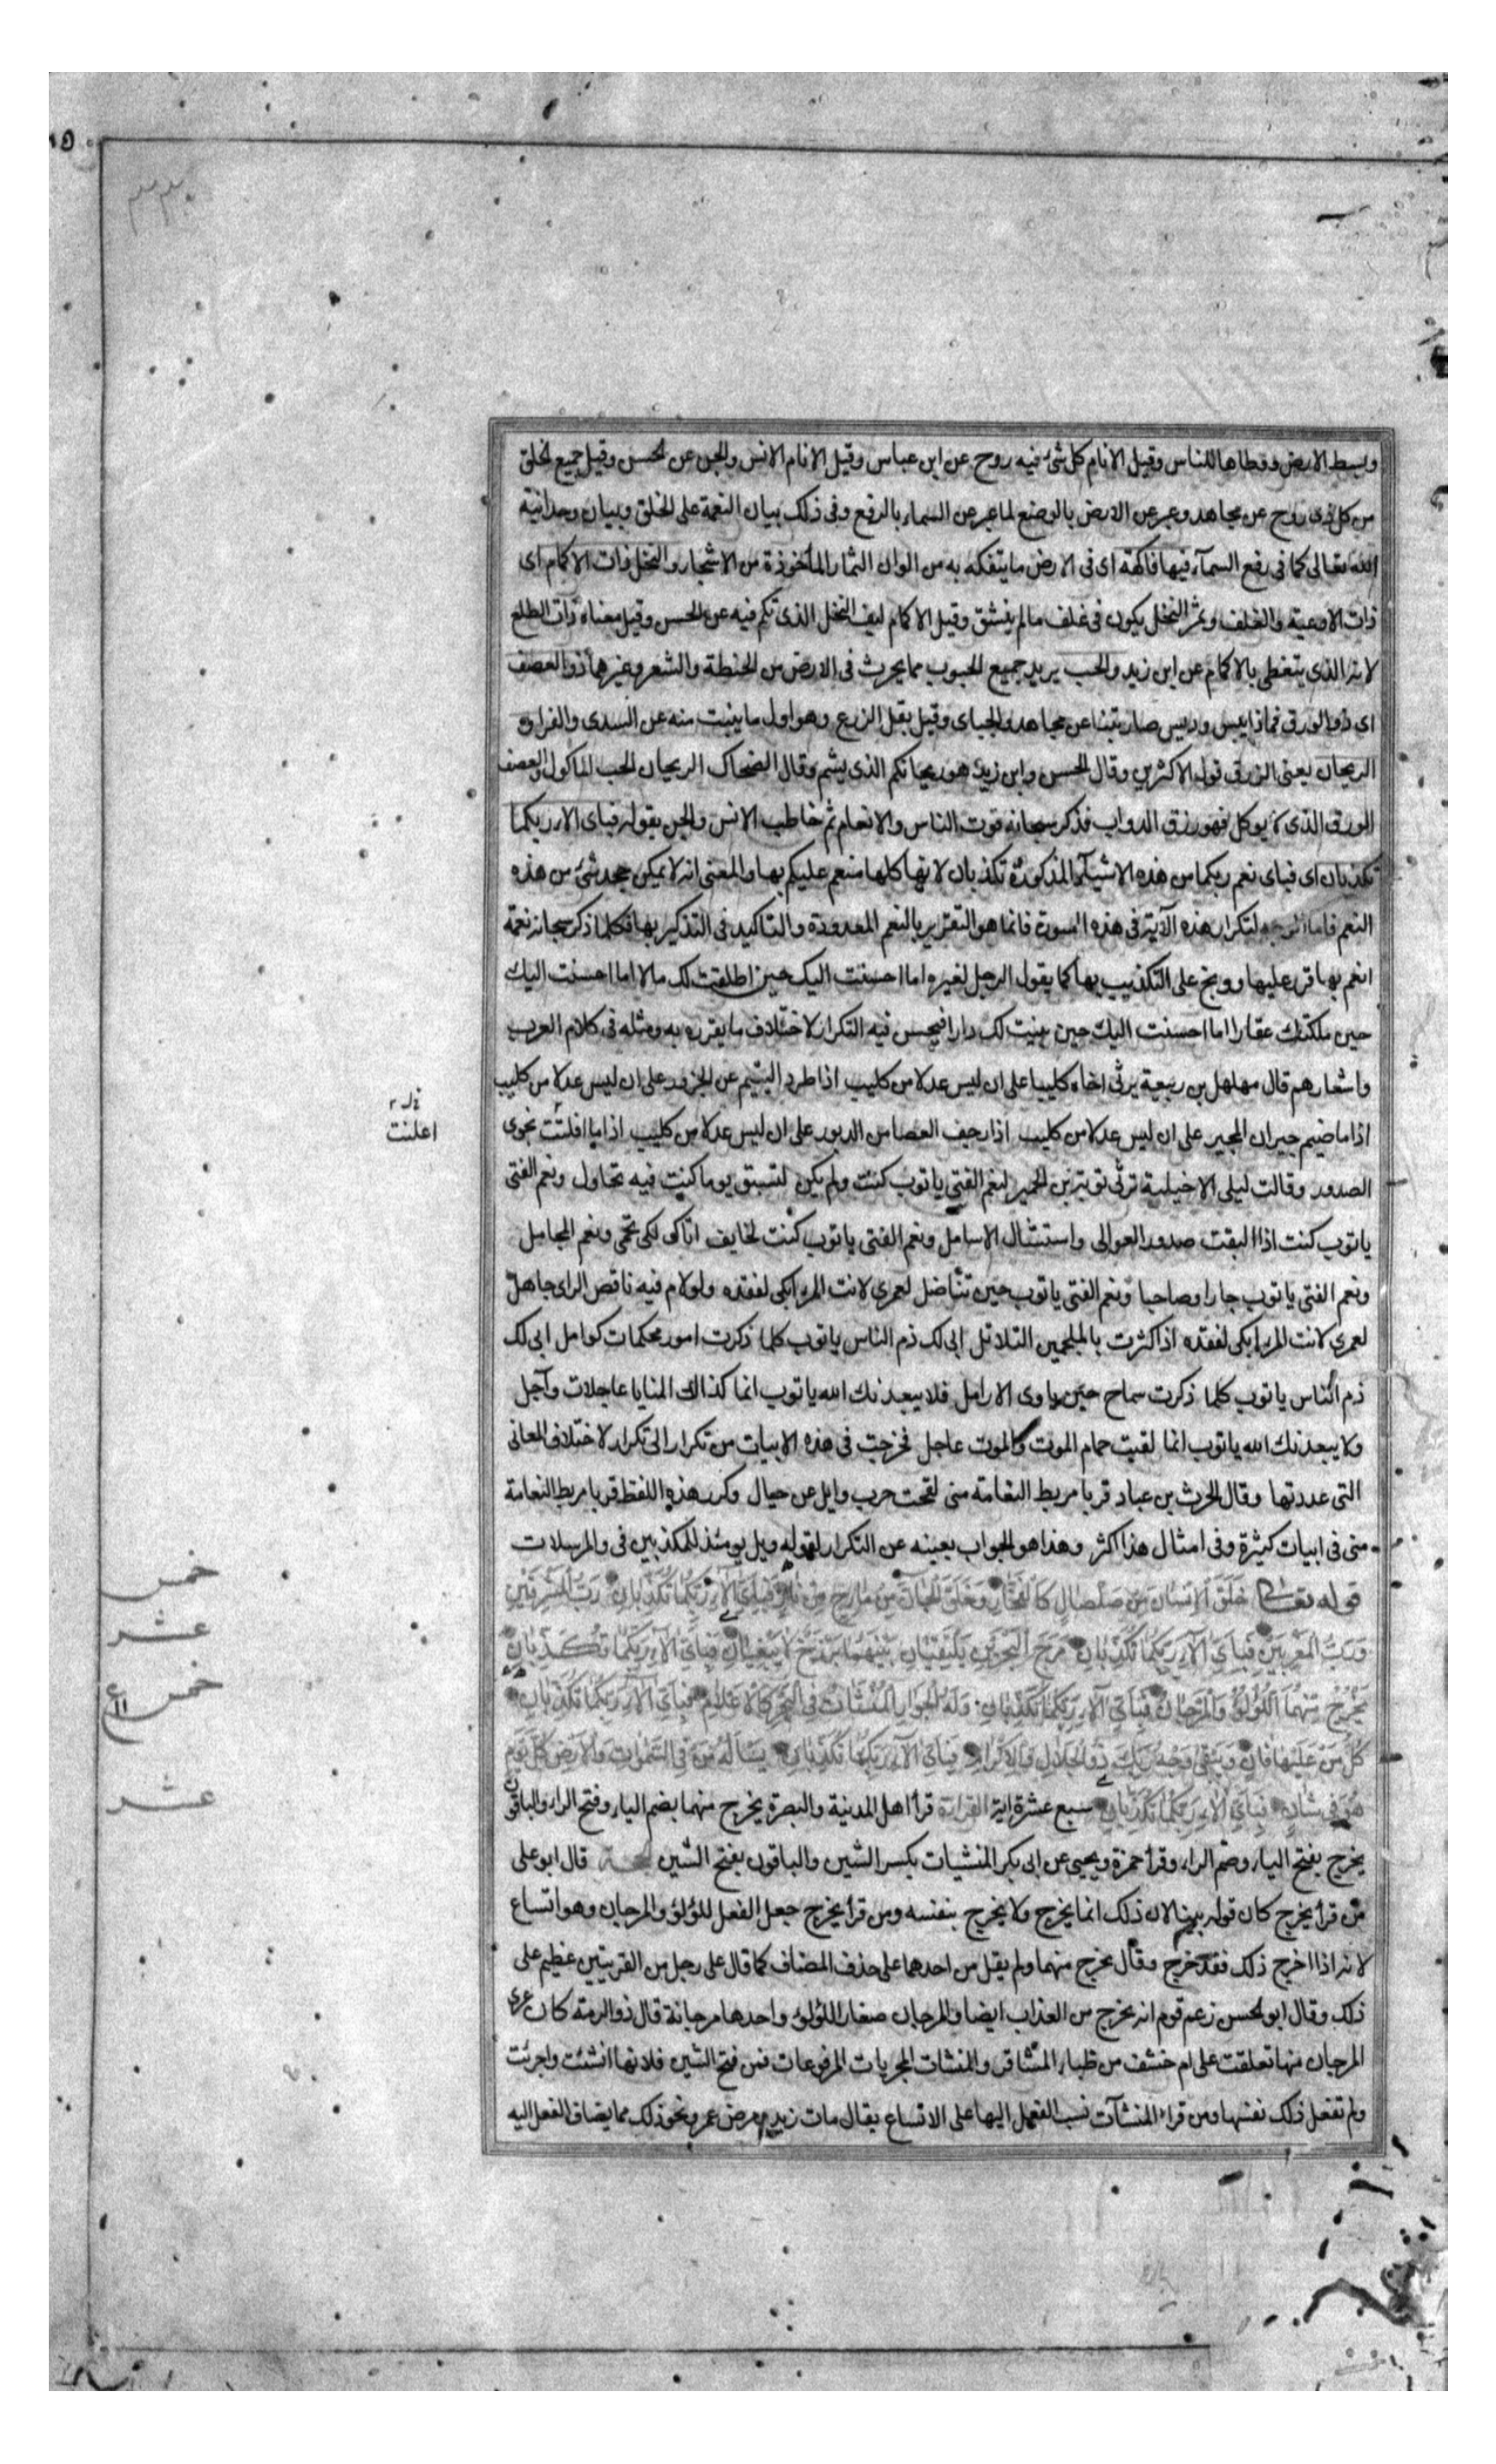 وبسط الارض وقطاها للناس وقيل الانام كل شئ فيه روح عن ابن عباس وقيل الانام الانس والجن عن الحسن وقيل جميع الخلق
من كل ذى روح عن مجاهد وعبر عن الارض بالوضع لما عبر عن السماء بالرفع وفى ذلك بيان النعمة على الخلق وبيان وحدانية
الله تعالى كما فى رفع السمآء فيها فاكهة اى فى الارض ما يتفكه به من الوان الثمار المأخوذة من الاشجار والنخل ذات الاكمام اى
ذات الاوعية والغلف وثمر النخل يكون فى غلف ما لم ينشق وقيل الاكمام ليف النخل الذى تكم فيه عن الحسن وقيل معناه ذات الطلع
لانه الذى يتغطى بالاكمام عن ابن زيد والحب يريد جميع الحبوب مما يحرث فى الارض من الحنطة والشعر وغيرهما ذو العصف
اى ذو الورق فماذا يبس وديس صار تبنا عن مجاهد والجباى وقيل بقل الزرع وهو اول ما ينبت منه عن السدى والفرا و
الريحان يعنى الرزق قول الاكثرين وقال الحسن وابن زيد هو ريحانكم الذى يشم وقال الضحاك الريحان الحب الماكول والعصف
الورق الذى لا يوكل فهو رزق الدواب فذكر سبحانه قوت الناس والانعام ثم خاطب الانس والجن بقوله فباى الاء ربكما
تكذبان اى فباى نعم ربكما من هذه الاشيآء المذكورة تكذبان لانها كلها منعم عليكم بها والمعنى انه لا يمكن جحد شئ من هذه
النعم فاما الوجه لتكرار هذه الآية فى هذه السورة فانما هو التقرير بالنعم المعدودة والتاكيد فى التذكير بها فكلما ذكر سبحانه نعمة
انعم بها قرر عليها ووبخ على التكذيب بها كما يقول الرجل لغيره اما احسنت اليك حين اطلقت لك مالا اما احسنت اليك
حين ملكتك عقارا اما احسنت اليك حين بنيت لك دارا فيحسن فيه التكرار لاختلاف ما يقرره به ومثله فى كلام العرب
واشعارهم قال مهلهل بن ربيعة يرثى اخاه كليبا على ان ليس عدلا من كليب اذا طرد اليتيم عن الجزور على ان ليس عدلا من كليب
اذا ما ضيم جيران المجير على ان ليس عدلا من كليب اذا رجف العضا من الدبور على ان ليس عدلا من كليب اذا ما افلتت نجوى
الصدور وقالت ليلى الاخيلية ترثى توبة بن الحمير لنعم الفتى يا توب كنت ولم يكن لتسبق يوما كنت فيه تحاول ونعم الفتى
يا توب كنت اذا البقت صدور العوالى واستشال الاسافل ونعم الفتى يا توب كنت لخايف اتاك لكى تحمى ونعم المجامل
ونعم الفتى يا توب جارا وصاحبا ونعم الفتى يا توب حين تناضل لعمرى لانت المرء ابكى لفقده ولو لام فيه ناقص الراى جاهل
لعمرى لانت المرء ابكى لفقده اذا كثرت بالملجمين التلاتل ابى لك ذم الناس يا توب كلما ذكرت امور محكمات كوامل ابى لك
ذم الناس يا توب كلما ذكرت سماح حين ياوى الارامل فلا يبعدنك الله يا توب انما كذاك المنايا عاجلات وآجل
ولا يبعدنك الله يا توب انما لقيت حمام الموت والموت عاجل فخرجت فى هذه الابيات من تكرار الى تكرار لاختلاف المعانى
التى عددتها وقال الحرث بن عباد قربا مربط النعامة منى لقحت حرب وايل عن حيال وكرر هذه اللفظ قربا مربط النعامة
منى فى ابيات كثيرة وفى امثال هذا كثر وهذا هو الجواب بعينه عن التكرار لقوله ويل يومئذ للمكذبين فى والمرسلات
قوله تعالى خَلَقَ الْاِنْسَانَ مِنْ صَلْصَالٍ كَالْفَخَّارِ وَخَلَقَ الْجَانَّ مِنْ مَارِجٍ مِنْ نَارٍ فَبِأَىِّ آلَاءِ رَبِّكُمَا تُكَذِّبَانِ رَبُّ الْمَشْرِقَيْنِ
وَرَبُّ الْمَغْرِبَيْنِ فَبِأَىِّ آلَاءِ رَبِّكُمَا تُكَذِّبَانِ مَرَجَ الْبَحْرَيْنِ يَلْتَقِيَانِ بَيْنَهُمَا بَرْزَخٌ لَا يَبْغِيَانِ فَبِأَىِّ آلَاءِ رَبِّكُمَا تُكَذِّبَانِ
يَخْرُجُ مِنْهُمَا اللُّؤْلُؤُ وَالْمَرْجَانُ فَبِأَىِّ آلَاءِ رَبِّكُمَا تُكَذِّبَانِ وَلَهُ الْجَوَارِ الْمُنْشَآتُ فِى الْبَحْرِ كَالْاَعْلَامِ فَبِأَىِّ آلَاءِ رَبِّكُمَا تُكَذِّبَانِ
كُلُّ مَنْ عَلَيْهَا فَانٍ وَيَبْقَى وَجْهُ رَبِّكَ ذُو الْجَلَالِ وَالْاِكْرَامِ فَبِأَىِّ آلَاءِ رَبِّكُمَا تُكَذِّبَانِ يَسْأَلُهُ مَنْ فِى السَّمٰوَاتِ وَالْاَرْضِ كُلَّ يَوْمٍ
هُوَ فِى شَأْنٍ فَبِأَىِّ آلَاءِ رَبِّكُمَا تُكَذِّبَانِ سبع عشرة اية القراءة قرأ اهل المدينة والبصرة يخرج منهما بضم الياء وفتح الراء والباقون
يخرج بفتح الياء وضم الراء وقرأ حمزة ويحيى عن ابى بكر المنشيات بكسر الشين والباقون بفتح الشين الحجة قال ابو على
من قرأ يخرج كان قوله بينا لان ذلك انما يخرج ولا يخرج بنفسه ومن قرأ يخرج جعل الفعل للؤلؤ والمرجان وهو اتساع
لانه اذا اخرج ذلك فقد خرج وقال يخرج منهما ولم يقل من احدهما على حذف المضاف كما قال على رجل من القريتين عظيم على
ذلك وقال ابو الحسن زعم قوم انه يخرج من العذاب ايضا والمرجان صغار اللؤلؤ واحدها مرجانة قال ذو الرمة كان عرى
المرجان منها تعلقت على ام خشف من ظباء المشاقر والمنشات المجريات المرفوعات فمن فتح الشين فلانها انشئت واجريت
ولم تفعل ذلك نفسها ومن قراء المنشآت نسب الفعل اليها على الاتساع يقال مات زيد ومرض عمرو ونحو ذلك مما يضاف الفعل اليه
اعلنت
خمس
عشر
خمس
عشر